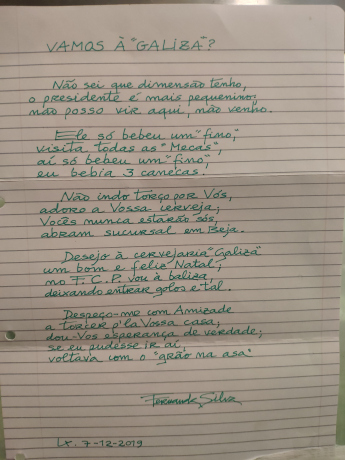 VAMOS À "GALIZA"?
Não sei que dimensão tenho,
o presidente é mais pequenino;
não posso vir aqui, não venho.
Ele só bebeu um "fino,"
visita todas as "Mecas",
aí só bebeu um "fino",
eu bebia 3 canecas.
Não indo torço por Vós,
adoro a Vossa cerveja;
Vocês nunca estarão sós,
abram sucursal em Beja.
Desejo à cervejaria "Galiza"
um bom e feliz Natal;
no F.C.P. vou à baliza
deixando entrar golos e tal.
Despeço-me com Amizade
a torcer p'la Vossa casa;
dou-Vos esperança de verdade;
se eu pudesse ir aí,
voltava com o "grão na asa"
Fernando Silva
Lx. 7-12-2019